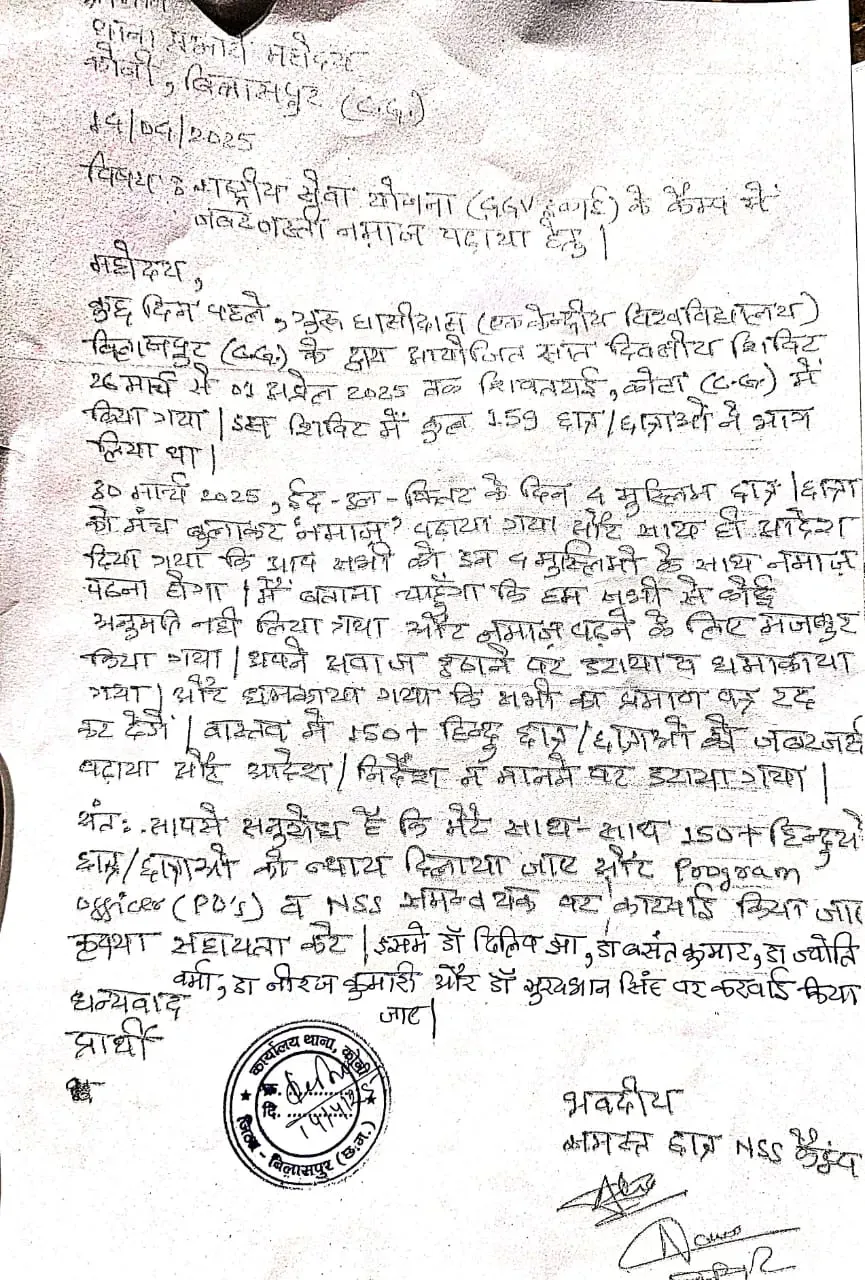 थाना प्रभारी महोदय
कोनी, बिलासपुर (C.G.)
14/04/2025
विषय : राष्ट्रीय सेवा योजना (GGV इकाई) के कैम्प में
जबरजस्ती नमाज पढ़ाया हेतु |
महोदय,
कुछ दिन पहले, गुरू घासीदास (एक केन्द्रीय विश्वविद्यालय)
बिलासपुर (C.G.) के द्वारा आयोजित सात दिवसीय शिविर
26 मार्च से 01 अप्रैल 2025 तक शिवतराई, कोटा (C.G.) में
किया गया | इस शिविर में कुल 159 छात्र/छात्राओं ने भाग
लिया था |
30 मार्च 2025, ईद-उल-फितर के दिन 4 मुस्लिम छात्र/छात्रा
को मंच बुलाकर नमाज़ पढ़ाया गया और साथ ही आदेश
दिया गया कि आप सभी को इन 4 मुस्लिमो के साथ नमाज़
पढ़ना होगा | मैं बताना चाहूँगा कि हम सभी से कोई
अनुमति नही लिया गया और नमाज़ पढ़ने के लिए मजबूर
किया गया | अपने आवाज उठाने पर डराया व धमाकाया
गया | और धमकाया गया कि सभी का प्रमाण पत्र रद्द
कर देगें | वास्तव में 150+ हिन्दु छात्र/छात्राओं को जबरजस्ती
पढ़ाया और आदेश/निर्देश न मानने पर डराया गया |
अंतः आपसे अनुरोध है कि मेरे साथ-साथ 150+ हिन्दुओ
छात्र/छात्राओं को न्याय दिलाया जाए और Program
Officer (PO's) व NSS समन्वयक पर कारवाई किया जाए
कृपया सहायता करे | इसमे डॉ दिलिप झा, डा बसंत कुमार, डा ज्योति
वर्मा, डा नीरज कुमारी और डॉ सुरयभान सिंह पर करवाई किया
जाए |
धन्यवाद
प्रार्थी
कार्यालय थाना, कोनी
क्र.
दि. 14/4/25
जिला - बिलासपुर (छ.ग.)
भवदीय
समस्त छात्र NSS कैम्प